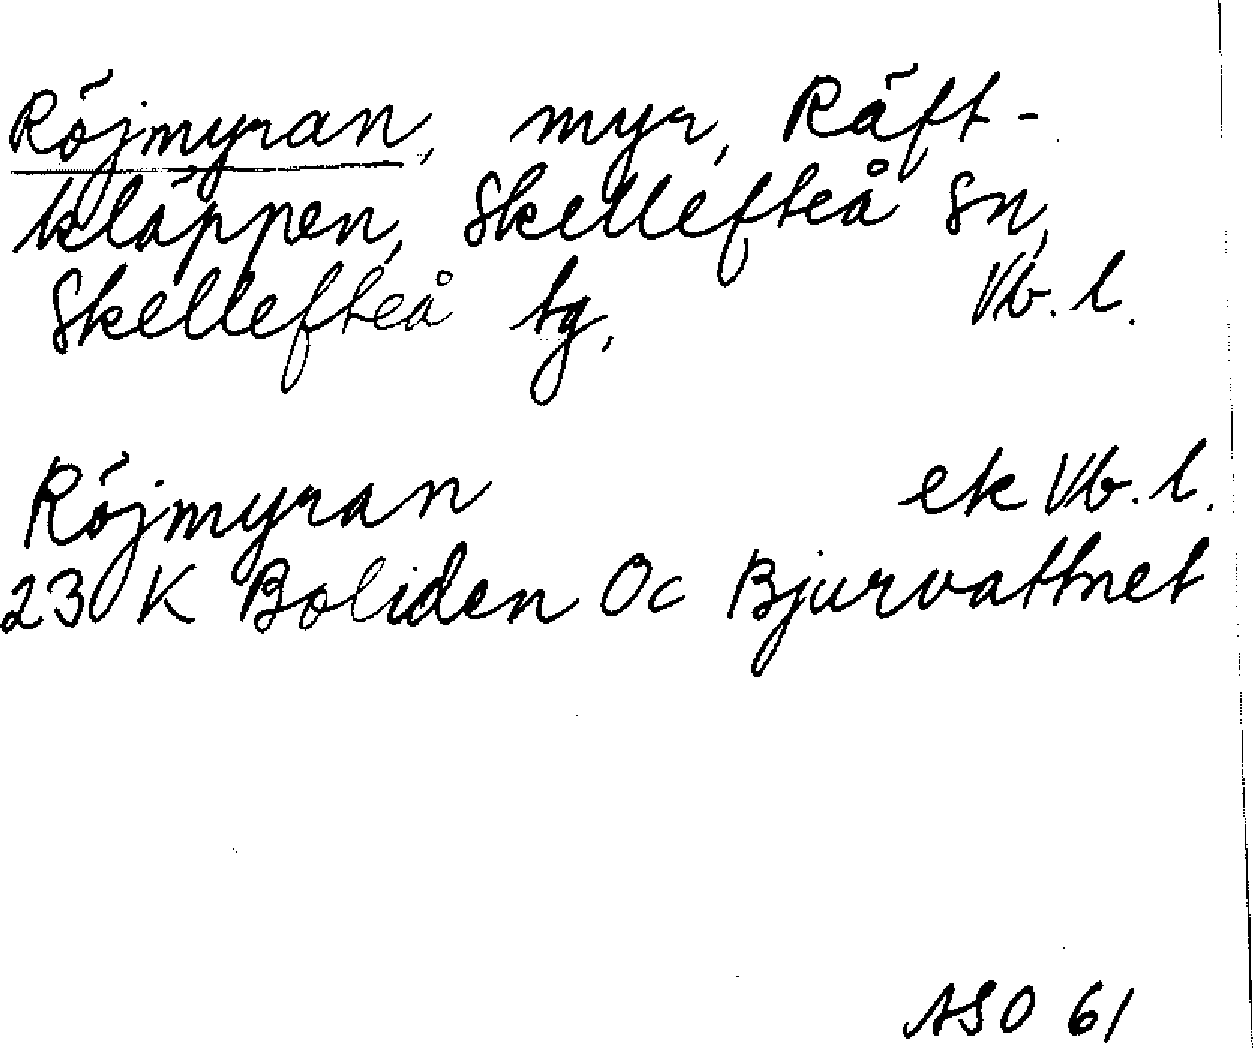 Röjmyran, myr, Räft-
kläppen, Skellefteå sn,
Skellefteå tg, Vb. l.
Röjmyran ek Vb. l.
23 K Boliden 0c Bjurvattnet
ASO 61